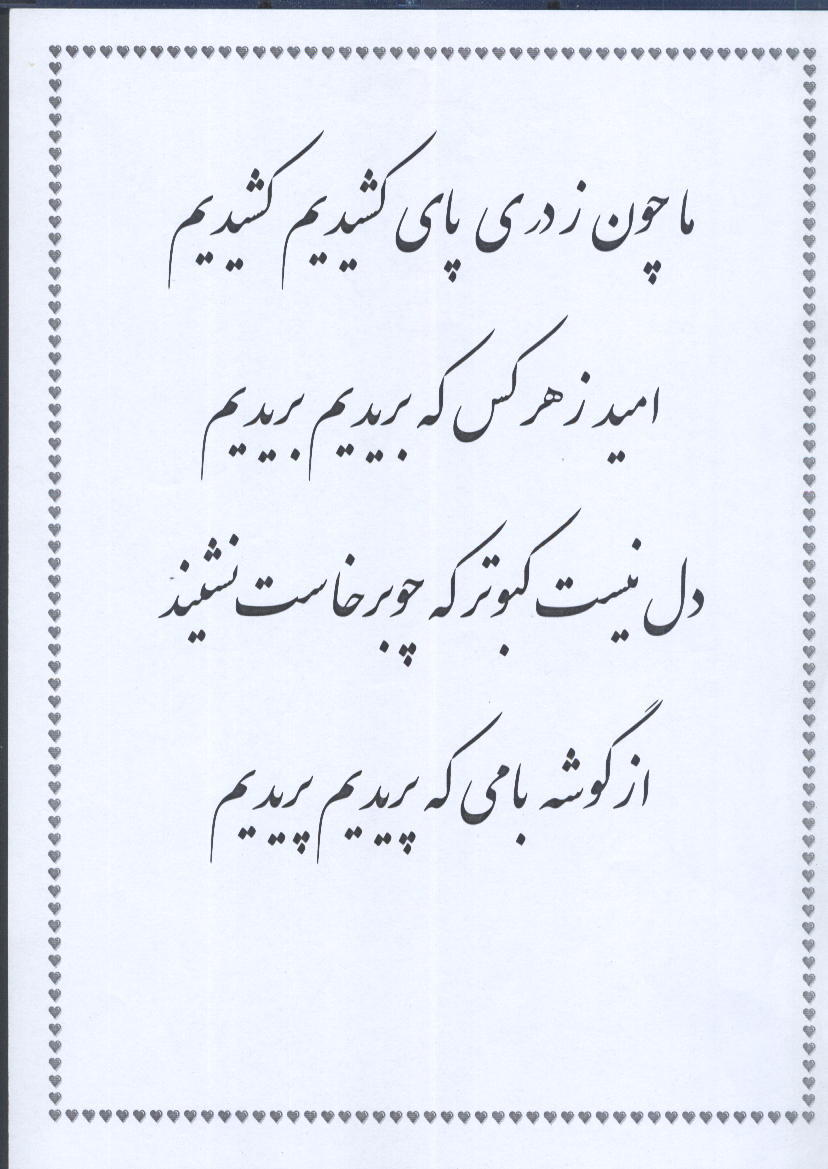 ما چون ز دری پای کشیدیم کشیدیم
امید ز هر کس که بریدیم بریدیم
دل نیست کبوتر که چو برخاست نشیند
از گوشه بامی که پریدیم پریدیم